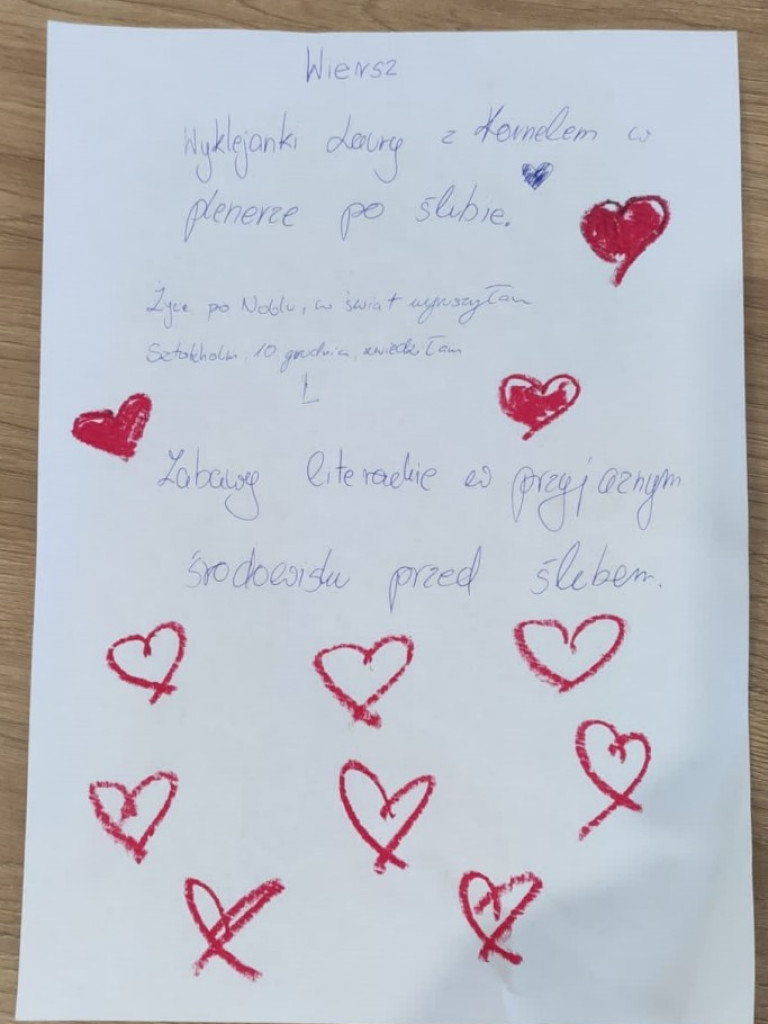 Wiersz
Wyklejanki Laury z Kornelem w
plenerze po ślubie.
Życie po Noblu, w świat wyruszyłam
Sztokholm, 10 grudnia, zwiedziłam
L
Zabawy literackie w przyjaznym
środowisku przed ślubem.